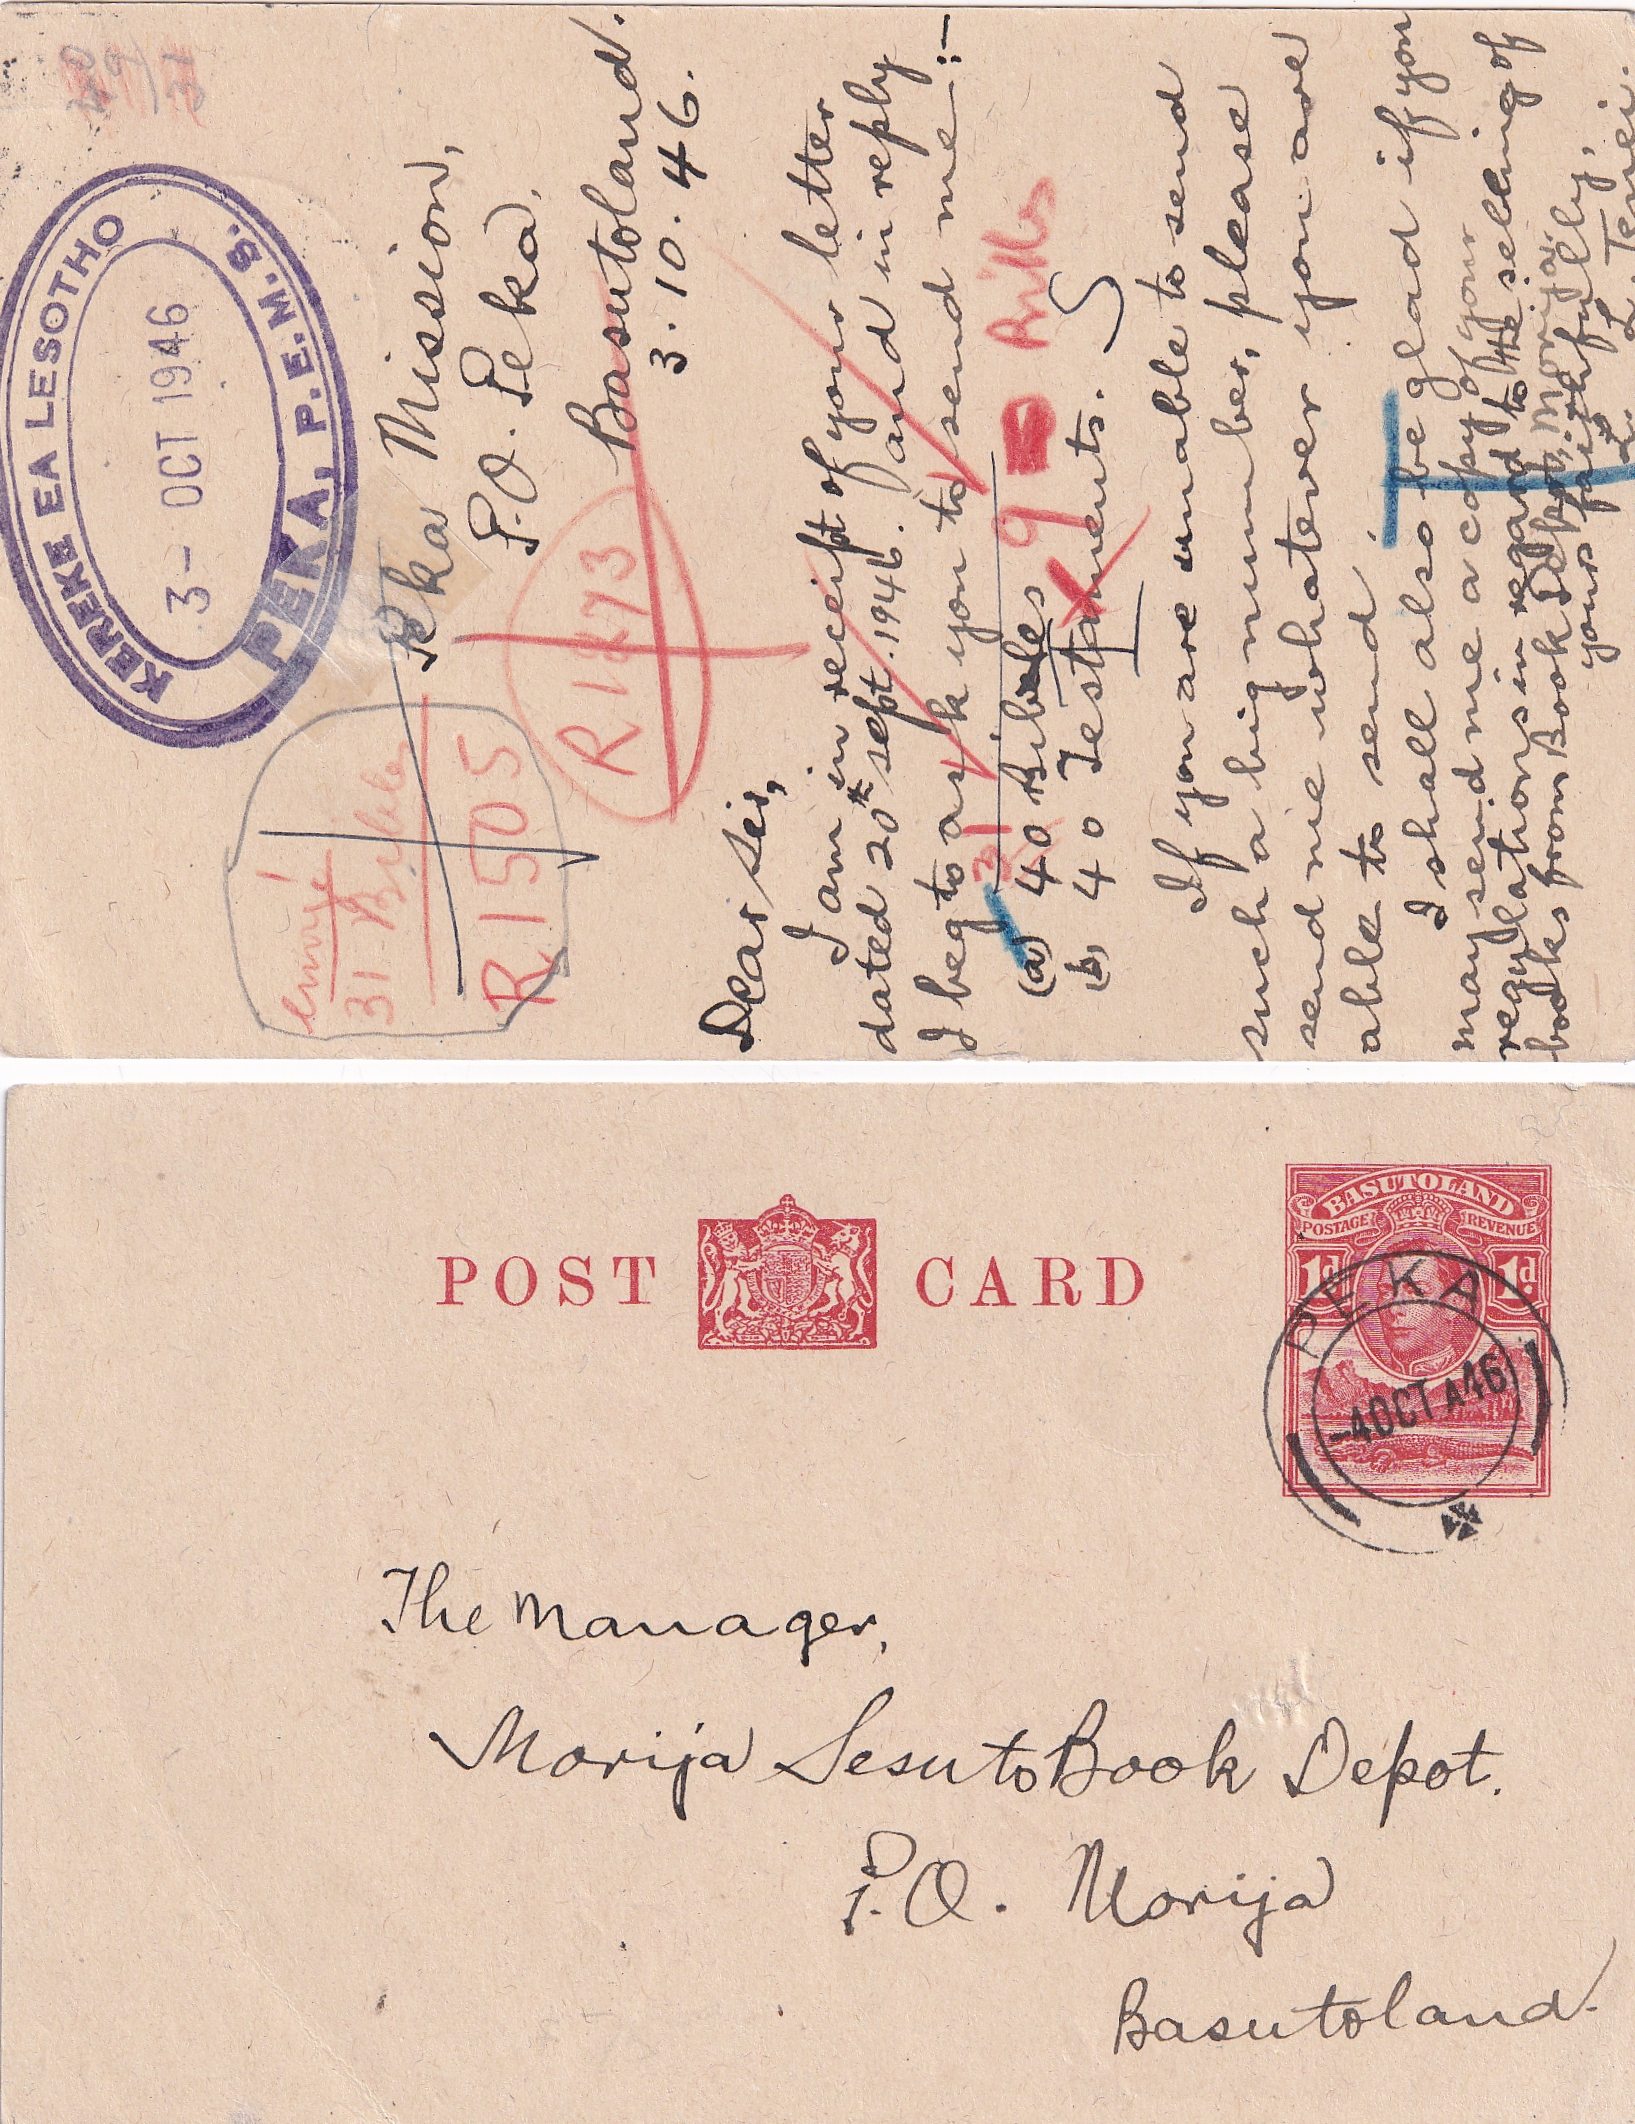 KEREKE EA LESOTHO
3- OCT 1946
PEKA, P.E.M.S.
Peka Mission,
P.O. Peka,
Basutoland.
3.10.46.
31 Bibles
R1505
R1873
Dear Sir,
I am in receipt of your letter
dated 20th Sept. 1946. and in reply
I beg to ask you to send me:-
31
(a) 40 Bibles 9 Bibles
(b) 40 Testaments.
If you are unable to send
such a big number, please
send me whatever you are
able to send.
I shall also be glad if you
may send me a copy of your
regulations in regard to the selling of
books from Book Depot, Morija.
yours faithfully,
POST CARD
BASUTOLAND
POSTAGE REVENUE
1d 1d
PEKA
-4 OCT A46
The Manager,
Morija Sesuto Book Depot.
P.O. Morija
Basutoland.